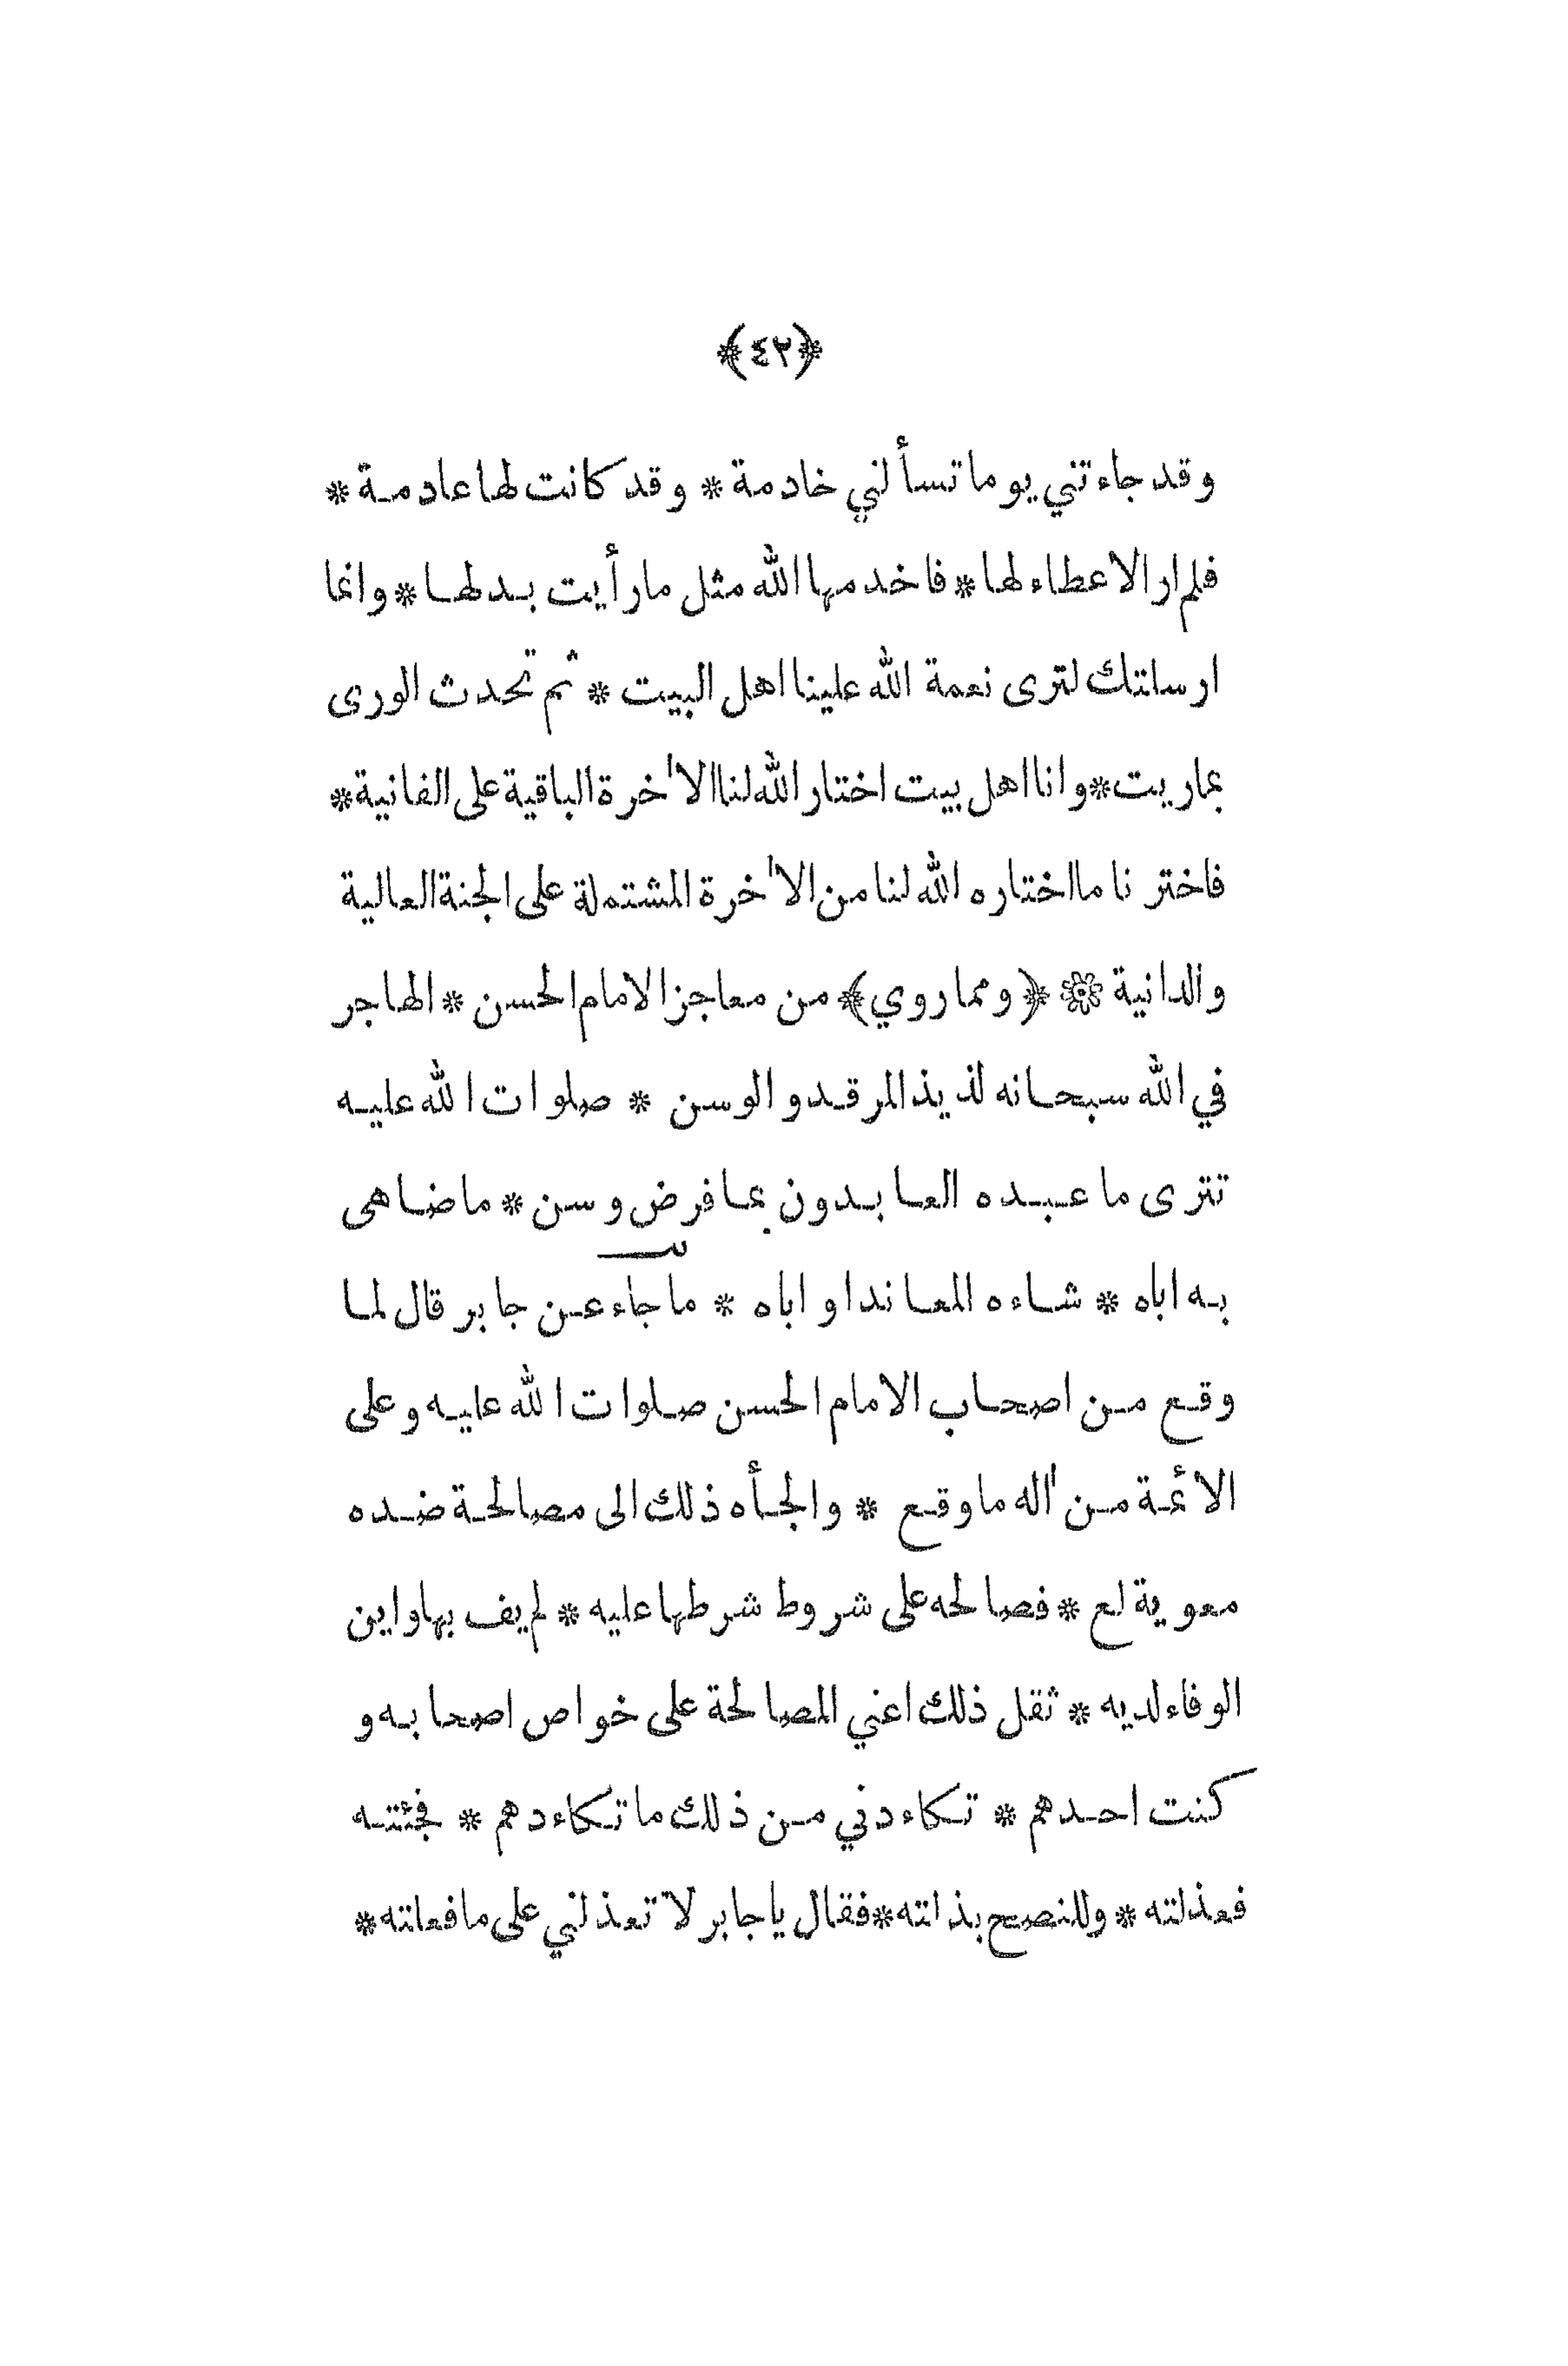 ﴿٤٢﴾
وقد جاءتني يوما تسألني خادمة * وقد كانت لها عادمة *
فلم ار الاعطاء لها * فاخدمها الله مثل ما رأيت بدلها * وانما
ارسلتك لترى نعمة الله علينا اهل البيت * ثم تحدث الورى
بما ريت * وانا اهل بيت اختار الله لنا الاٰخرة الباقية على الفانية *
فاخترنا ما اختاره الله لنا من الاٰخرة المشتملة على الجنة العالية
والدانية ۞ ﴿ومما روي﴾ من معاجز الامام الحسن * الهاجر
في الله سبحانه لذيذ المرقد والوسن * صلوات الله عليه
تترى ما عبده العابدون بما فرض وسن * ما ضاهى
به اباه * شاءه المعاند او اباه * ما جاء عن جابر قال لما
وقع من اصحاب الامام الحسن صلوات الله عليه وعلى
الائمة من اٰله ما وقع * والجأه ذلك الى مصالحة ضده
معوية لع * فصالحه على شروط شرطها عليه * لم يف بها واين
الوفاء لديه * ثقل ذلك اعني المصالحة على خواص اصحابه و
كنت احدهم * تكاءدني من ذلك ما تكاءدهم * فجئته
فعذلته * وللنصح بذلته * فقال يا جابر لا تعذلني على ما فعلته *